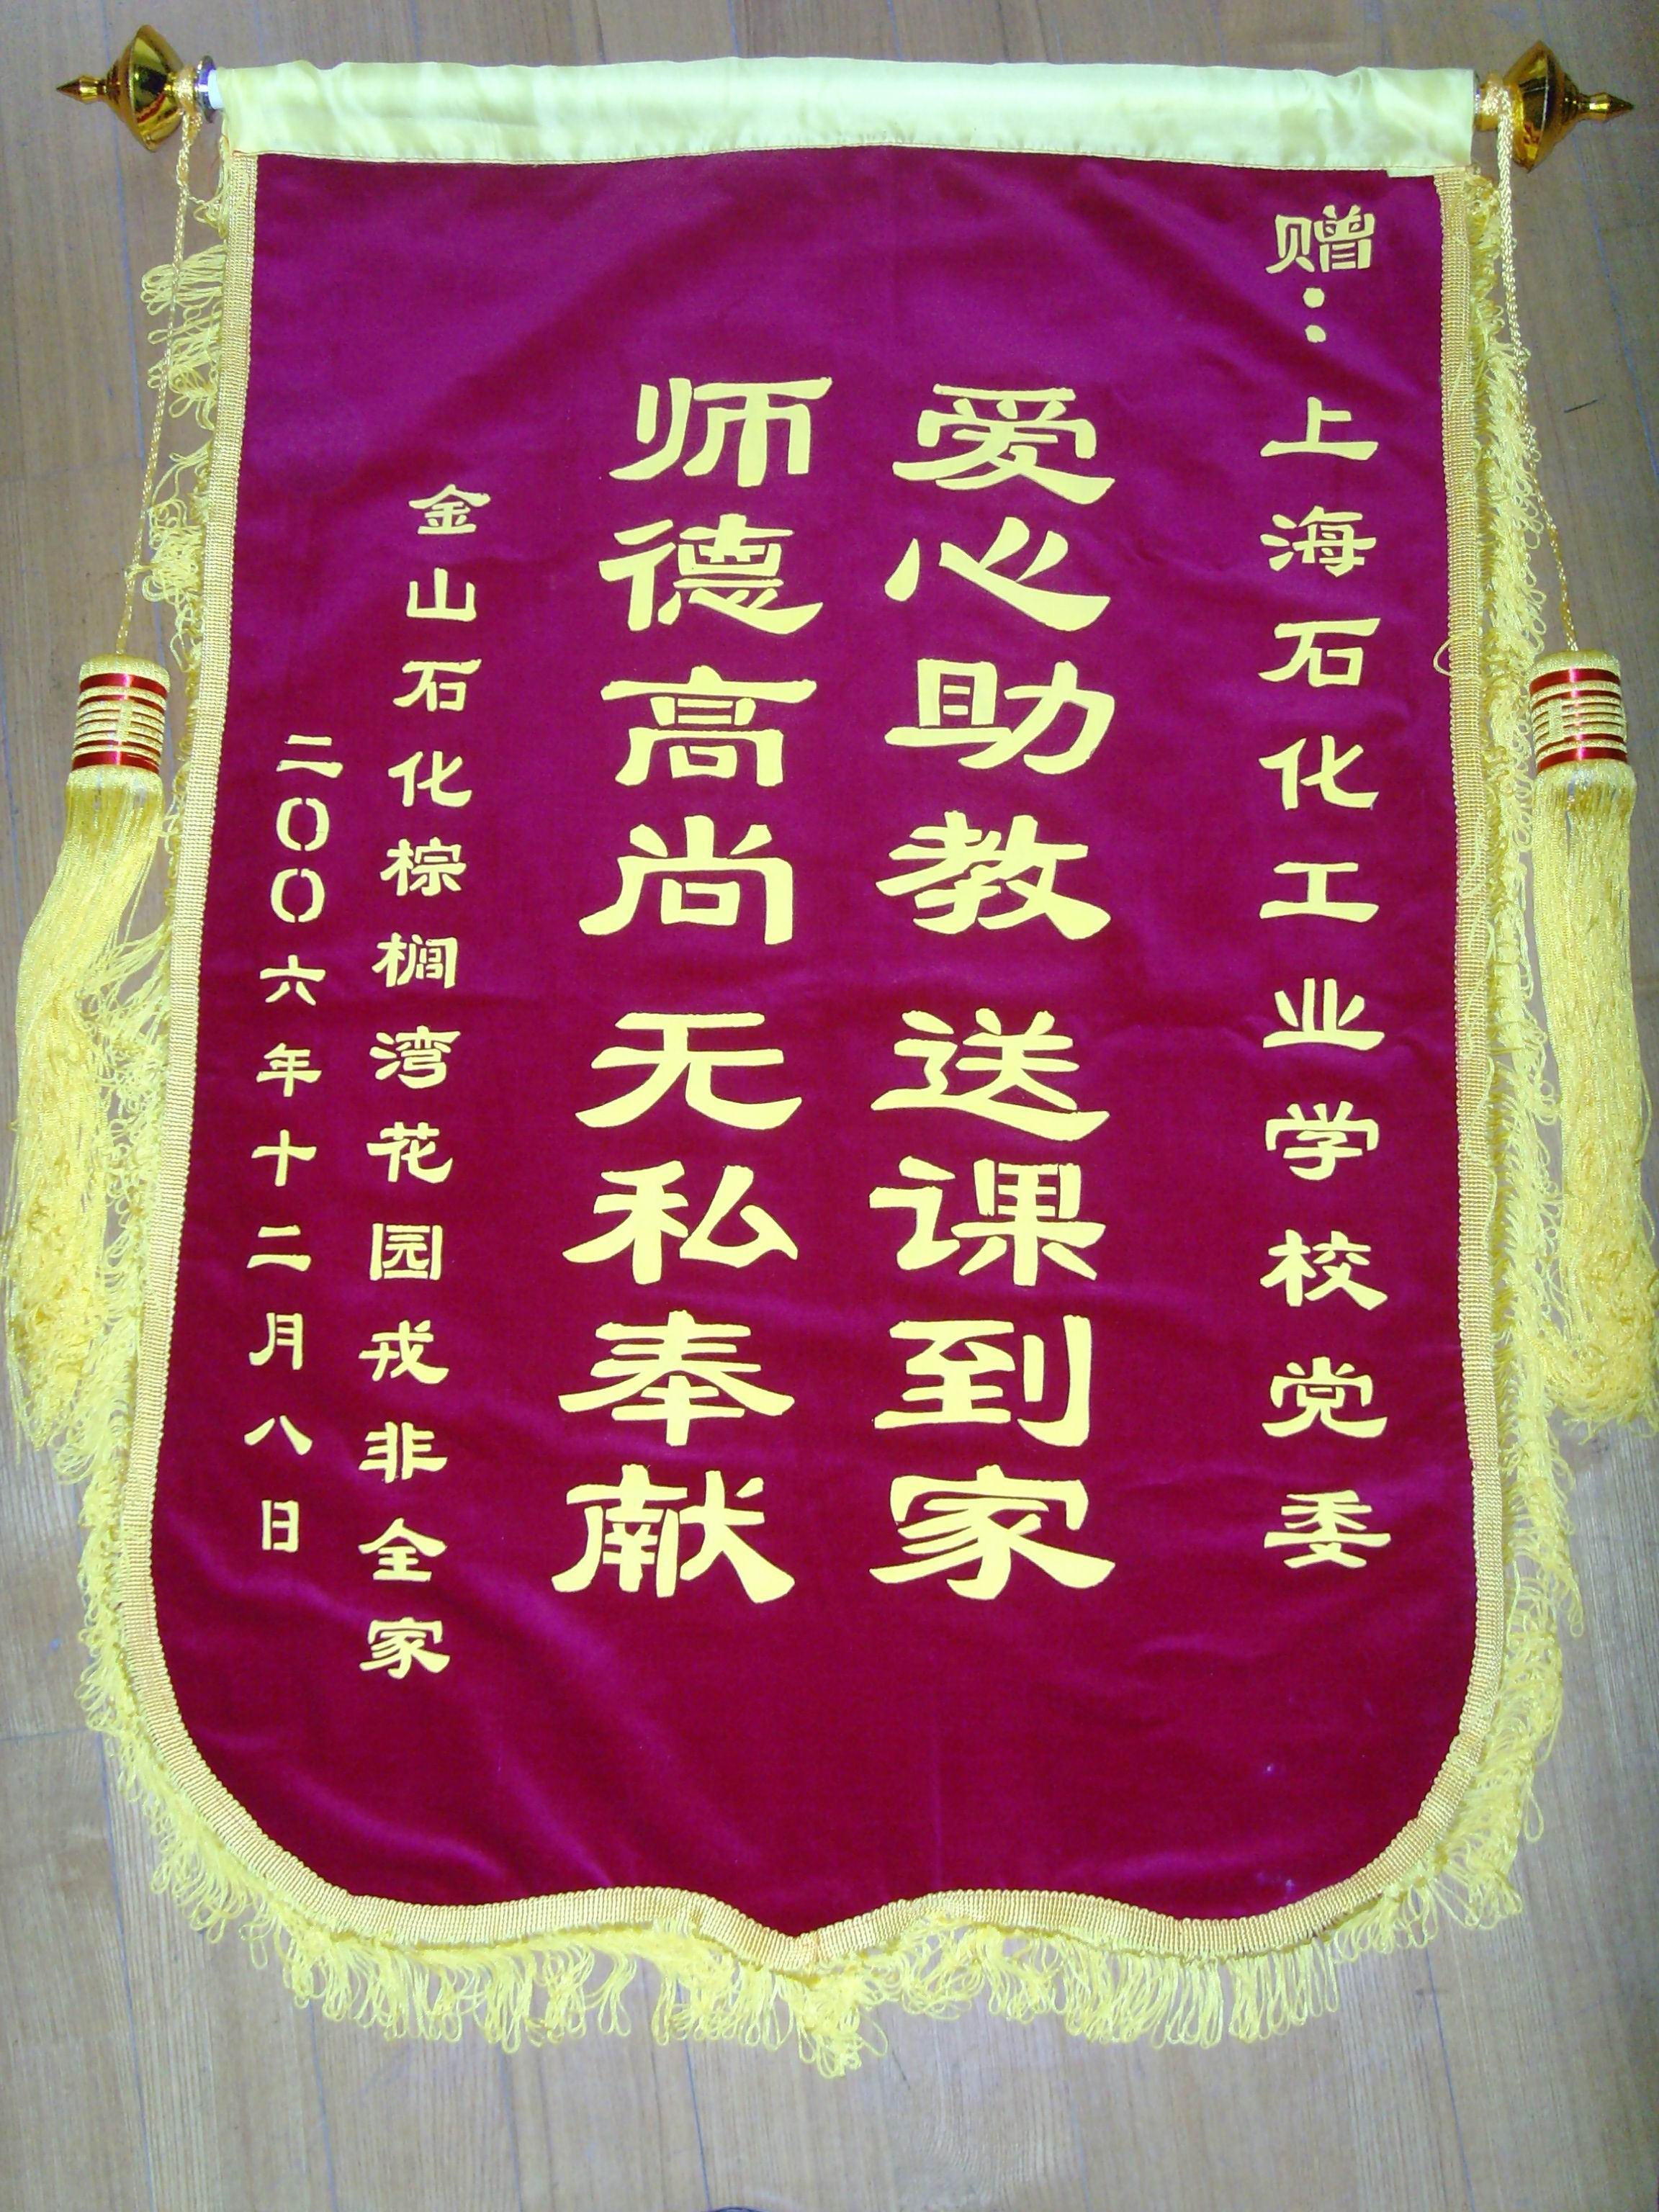 赠：上海石化工业学校党委
爱心助教 送课到家
师德高尚 无私奉献
金山石化棕榈湾花园戎非全家
二〇〇六年十二月八日